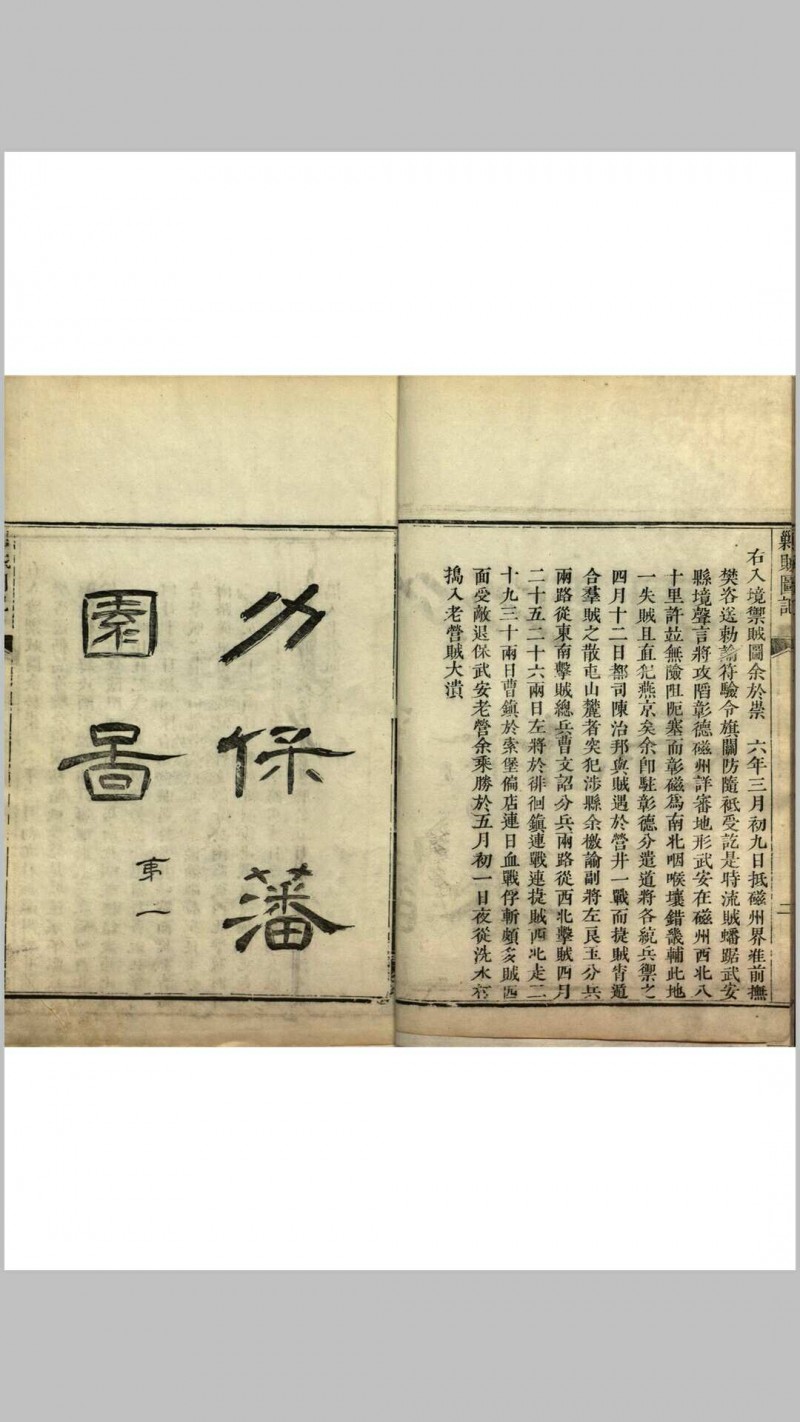 剿賊圖記
二
右入境禦賊圖余於崇 六年三月初九日抵磁州界准前撫
樊咨送勅諭符驗令旗關防隨祗受訖是時流賊蟠踞武安
縣境聲言將攻陷彰德磁州詳審地形武安在磁州西北八
十里許竝無險阻阨塞而彰磁爲南北咽喉壤錯畿輔此地
一失賊且直犯燕京矣余卽駐彰德分遣道將各統兵禦之
四月十二日都司陳治邦與賊遇於營井一戰而捷賊宵遁
合羣賊之散屯山麓者突犯涉縣余檄諭副將左良玉分兵
兩路從東南擊賊總兵曹文詔分兵兩路從西北擊賊四月
二十五二十六兩日左將於徘徊鎮連戰連捷賊西北走二
十九三十兩日曹鎮於索堡偏店連日血戰俘斬頗多賊四
面受敵退保武安老營余乘勝於五月初一日夜從洗水
搗入老營賊大潰
力保藩
園圖
第一